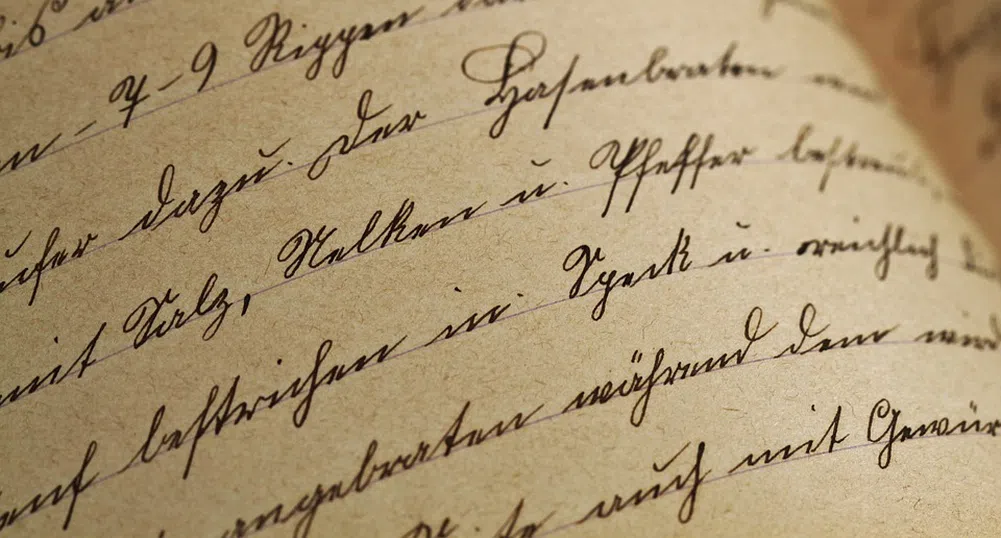 bis
– 7 – 9 Rippen
dazu. Der Hasenbraten
mit Salz, Nelken u. Pfeffer
bestrichen in Speck u. reichlich
angebraten während dem wird
auch mit Gewür